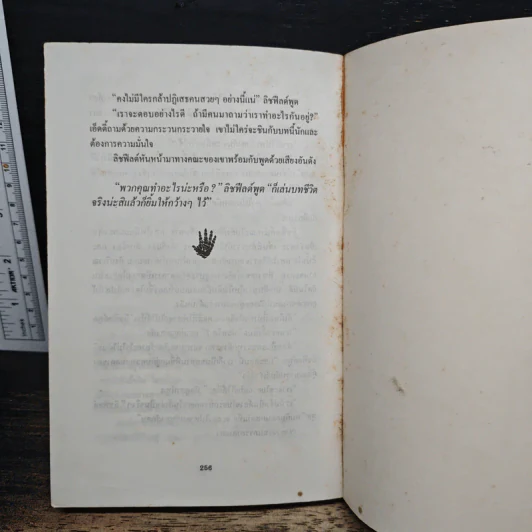 “คงไม่มีใครกล้าปฏิเสธคนสวยๆ อย่างนี้แน่” ลิชฟีลด์พูด
“เราจะตอบอย่างไรดี ถ้ามีคนมาถามว่าเราทำอะไรกันอยู่?”
เอ็ดดี้ถามด้วยความกระวนกระวายใจ เขาไม่ใคร่จะชินกับบทนี้นักและ
ต้องการความมั่นใจ
ลิชฟีลด์หันหน้ามาทางคณะของเขาพร้อมกับพูดด้วยเสียงอันดัง
“พวกคุณทำอะไรน่ะหรือ?” ลิชฟีลด์พูด “ก็เล่นบทชีวิต
จริงน่ะสิแล้วก็ยิ้มให้กว้างๆ ไว้”
256